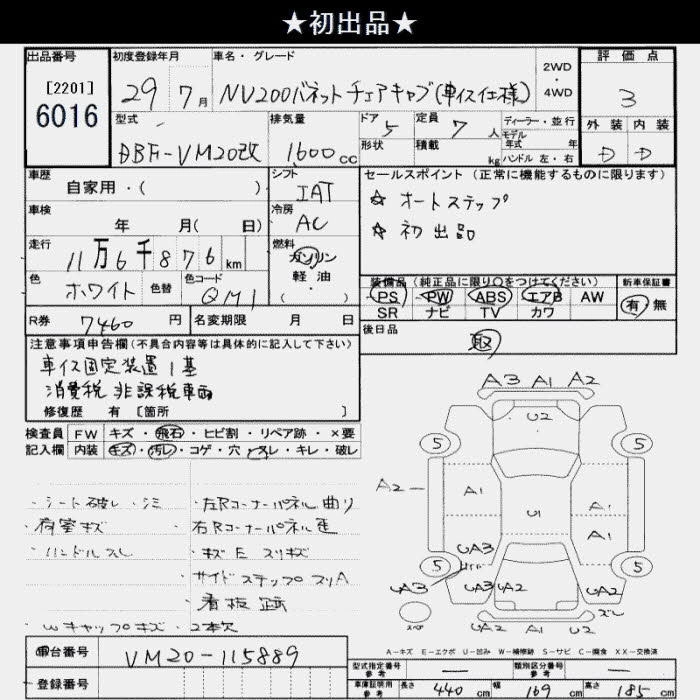 ★初出品★
出品番号
[2201]
6016
初度登録年月
29年 7月
車名・グレード
NV200バネット チェアキャブ(車イス仕様)
2WD
・
4WD
評価点
3
外装 内装
D D
型式
DBF-VM20改
排気量
1600cc
ドア
5
定員
7人
形状
積載
kg
ディーラー・並行
モデル
年式 年
ハンドル 左・右
車歴
自家用・( )
シフト
IAT
セールスポイント(正常に機能するものに限ります)
☆ オートステップ
☆ 初出品
車検
年 月( 日)
冷房
AC
走行
11万6千876km
燃料
ガソリン
軽油
( )
色
ホワイト
色替
色コード
QM1
装備品(純正品に限り○をつけてください)
PS PW ABS エアB AW
SR ナビ TV カワ
新車保証書
有 無
R券 7460円
名変期限 月 日
後日品
取
注意事項申告欄(不具合内容等は具体的に記入して下さい)
車イス固定装置1基
消費税非課税車両
修復歴 有 [箇所 ]
検査員
記入欄
FW キズ・飛石・ヒビ割・リペア跡・×要
内装 キズ・汚レ・コゲ・穴・スレ・キレ・破レ
・シート破レ・シミ
・荷室キズ
・ハンドルスレ
・左Rコーナーパネル曲り
・右Rコーナーパネル
・キズ E スリキズ
・サイドステップ スリA
・看板跡
・Wキャップキズ・2本欠
A3 A1 A2
U2
5 5
A2 A1 A1
U1
A1
UA3 UA3
5 5
UA3 UA3 UA2 UA2
スペア
UA2 A1 U2 ズレ
A-キズ E-エクボ U-凹み W-補修跡 S-サビ C-腐食 XX-交換済
車台番号 VM20-115889
登録番号
型式指定番号
参考
—
類別区分番号
参考
—
車庫証明用
参考
長さ 440cm 幅 169cm 高さ 185cm